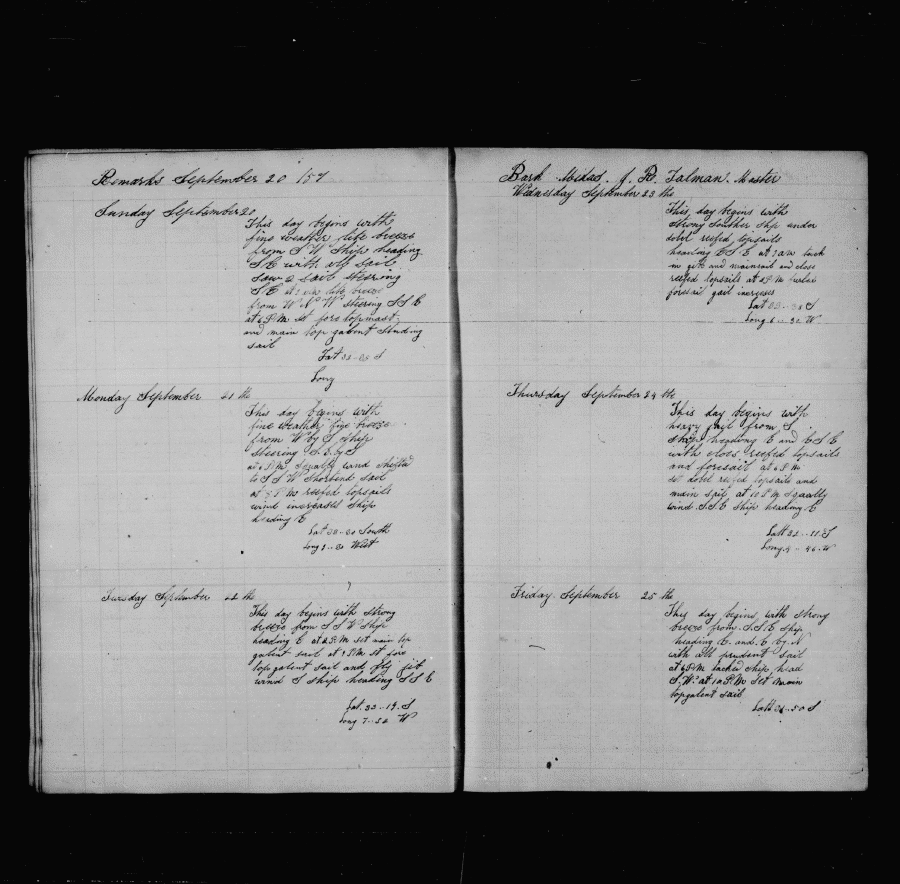 Remarks September 20 /57
Sunday September 20
This day begins with
fine weather lite breeze
from S W Ship heading
S E with all sail
saw a sail steering
S E at lite breeze
from W N W steering S S E
at 6 P.M set fore topmast
and main top galent studing
sail
Lat 33 S
Long
Monday September 21 th
This day begins with
fine weather fine breeze
from W by S Ship
steering S.E by S
at P.M Squally wind shifted
to S S W Shortend sail
at P M reefed topsails
wind increases ship
heading E
Lat South
Long West
Tuesday September 22 th
This day begins with strong
breeze from S S W Ship
heading E at P.M set main top
galent sail at P.M set fore
topgalent sail and fly jib
wind S ship heading S S E
Lat. 33..19. S
Long 7..52 W
Bark Midas. J. R. Talman. Master
Wednesday September 23 th
This day begins with
strong souther ship under
dobel reefed topsails
heading E S E at A M took
in gib and mainsail and close
reefed topsails at P.M
foresail gail increases
Lat 33 S
Long 6 W
Thursday September 24 th
This day begins with
heavy gail from S.
ship heading E and E S E
with cloes reefed topsails
and foresail at 6 P.M
set dobel reefed topsails and
main sail at 10 P M Squally
wind S.S.E ship heading E
Latt 32..11 S
Long W
Friday. September 25 th
This day begins with strong
breeze from S.S.E Ship
heading E. and. E by N
with all prudent sail
at 6 P.M tacked ship head
S.W. at 10 P.M set main
topgalent sail
Latt 31..50 S